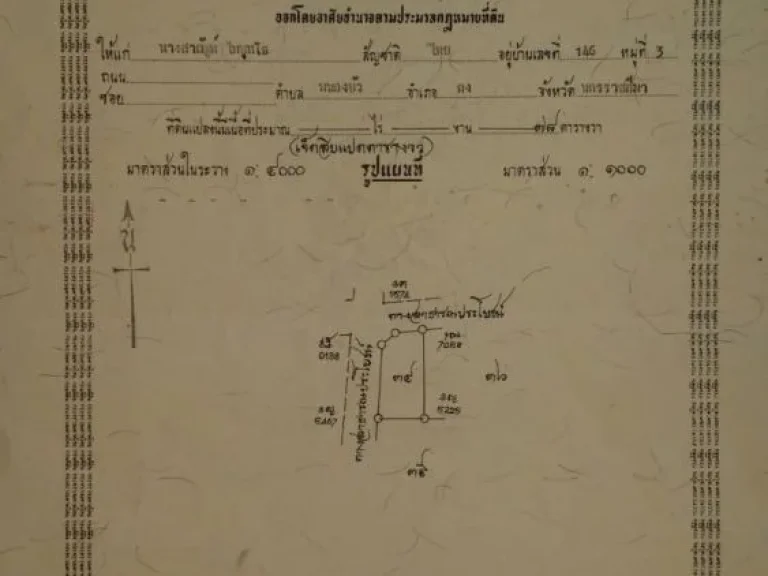 ออกโดยอาศัยอำนาจตามประมวลกฎหมายที่ดิน
ให้แก่ สัญชาติ ไทย อยู่บ้านเลขที่ 146 หมู่ที่ 3
ถนน
ซอย ตำบล หนองบัว อำเภอ คง จังหวัด นครราชสีมา
ที่ดินแปลงนี้มีเนื้อที่ประมาณ ไร่ งาน ๗๘ ตารางวา
(เจ็ดสิบแปดตารางวา)
มาตราส่วนในระวาง ๑: ๔๐๐๐ รูปแผนที่ มาตราส่วน ๑: ๑๐๐๐
น
ทางสาธารณประโยชน์
7088
0188
ทางสาธารณประโยชน์
๓๔
๓๖
5225
5467
๓๕